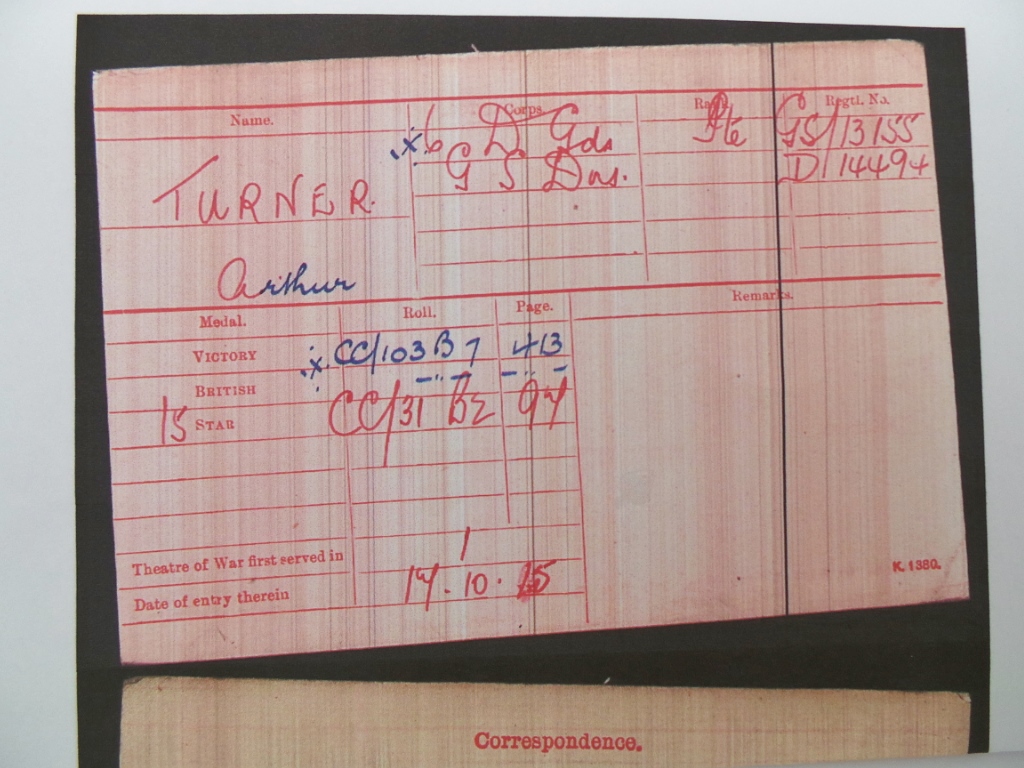 Name. Corps. Rank. Regtl. No.
.x. 6 D Gds Pte GS/13155
TURNER. G S Dns. D/14494
Arthur
Medal. Roll. Page. Remarks.
VICTORY .x. CC/103 B7 413
BRITISH -"- -"-
15 STAR CC/31 BE 97
Theatre of War first served in 1
Date of entry therein 17.10.15
K. 1380.
Correspondence.